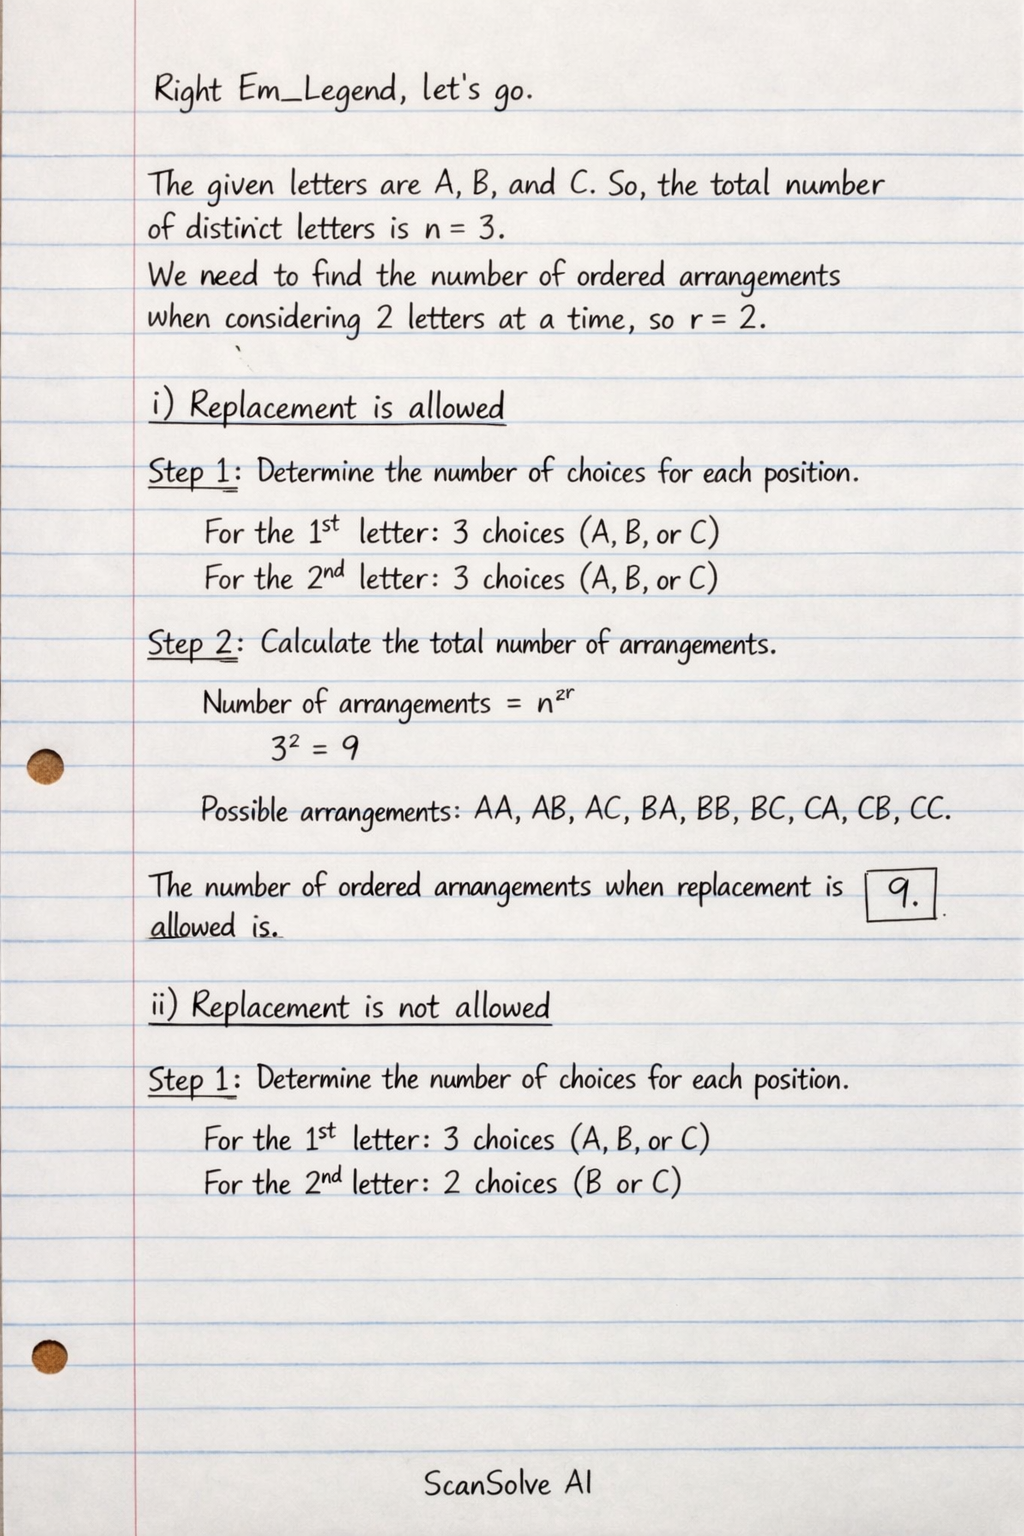 Right Em_Legend, let's go.
The given letters are A, B, and C. So, the total number
of distinct letters is n = 3.
We need to find the number of ordered arrangements
when considering 2 letters at a time, so r = 2.
i) Replacement is allowed
Step 1: Determine the number of choices for each position.
For the 1st letter: 3 choices (A, B, or C)
For the 2nd letter: 3 choices (A, B, or C)
Step 2: Calculate the total number of arrangements.
Number of arrangements = n²ʳ
3² = 9
Possible arrangements: AA, AB, AC, BA, BB, BC, CA, CB, CC.
The number of ordered arnangements when replacement is 9.
allowed is.
ii) Replacement is not allowed
Step 1: Determine the number of choices for each position.
For the 1st letter: 3 choices (A, B, or C)
For the 2nd letter: 2 choices (B or C)
ScanSolve AI